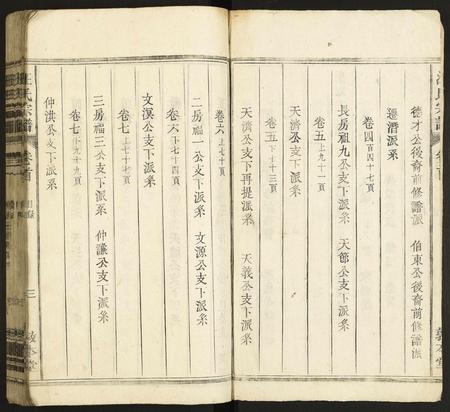 德才公後裔前修譜派　伯東公後裔前修譜派
迴潛派系
卷四百四十七頁
長房福九公支下派系　天節公支下派系
卷五上九十一頁
天濟公支下派系
卷五下十三頁
天濟公支下再提派系　天義公支下派系
卷六上七十頁
二房福一公支下派系　文源公支下派系
卷六下七十四頁
文溟公支下派系
卷七上七十頁
三房福三公支下派系　仲謙公支下派系
卷七下九十九頁
仲淇公支下派系
汪氏宗譜
卷首
三
敦本堂